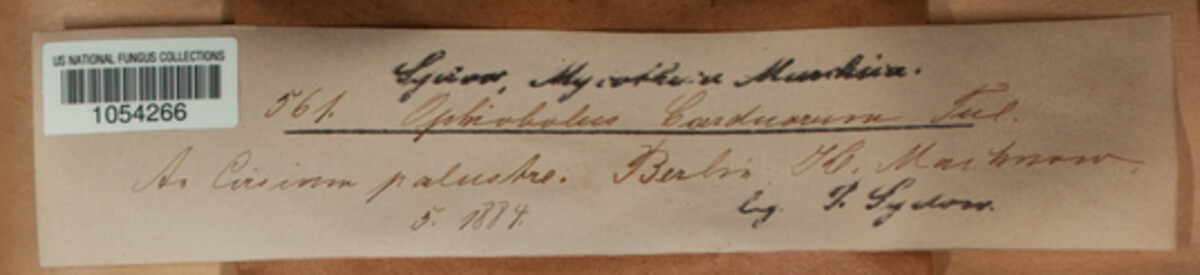 US NATIONAL FUNGUS COLLECTIONS
1054266
Sydow, Mycotheca Marchica.
561. Ophiobolus Carduorum Tul.
An Cirsium palustre. Berlin. Kl. Machnow.
5. 1884.
leg. P. Sydow.